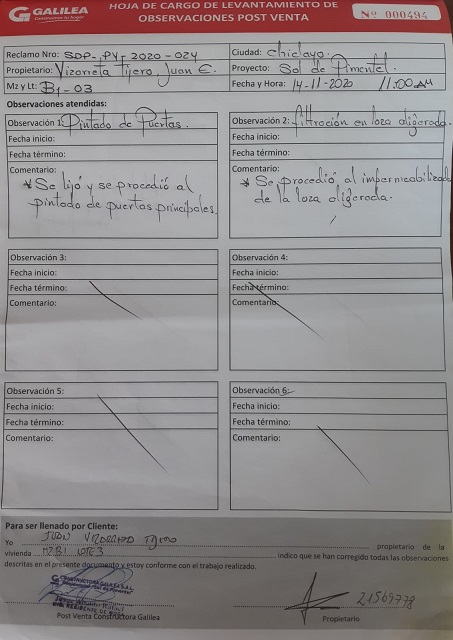 GALILEA
Construimos tu hogar
HOJA DE CARGO DE LEVANTAMIENTO DE
OBSERVACIONES POST VENTA
Nº 000494
Reclamo Nro: SDP-PV-2020-024
Ciudad: Chiclayo.
Propietario: Vizorreta Tijero, Juan E.
Proyecto: Sol de Pimentel.
Mz y Lt: B1-03
Fecha y Hora: 14-11-2020 11:00 AM
Observaciones atendidas:
Observación 1: Pintado de Puertas.
Fecha inicio:
Fecha término:
Comentario:
* Se lijó y se procedió al
pintado de puertas principales.
Observación 2: filtración en loza aligerada.
Fecha inicio:
Fecha término:
Comentario:
* Se procedió al impermeabilizado
de la loza aligerada.
Observación 3:
Fecha inicio:
Fecha término:
Comentario:
Observación 4:
Fecha inicio:
Fecha término:
Comentario:
Observación 5:
Fecha inicio:
Fecha término:
Comentario:
Observación 6:
Fecha inicio:
Fecha término:
Comentario:
Para ser llenado por Cliente:
Yo JUAN TIJERO propietario de la
vivienda MZ B1 LOTE 3 indico que se han corregido todas las observaciones
descritas en el presente documento y estoy conforme con el trabajo realizado.
Post Venta Constructora Galilea
21569778
Propietario